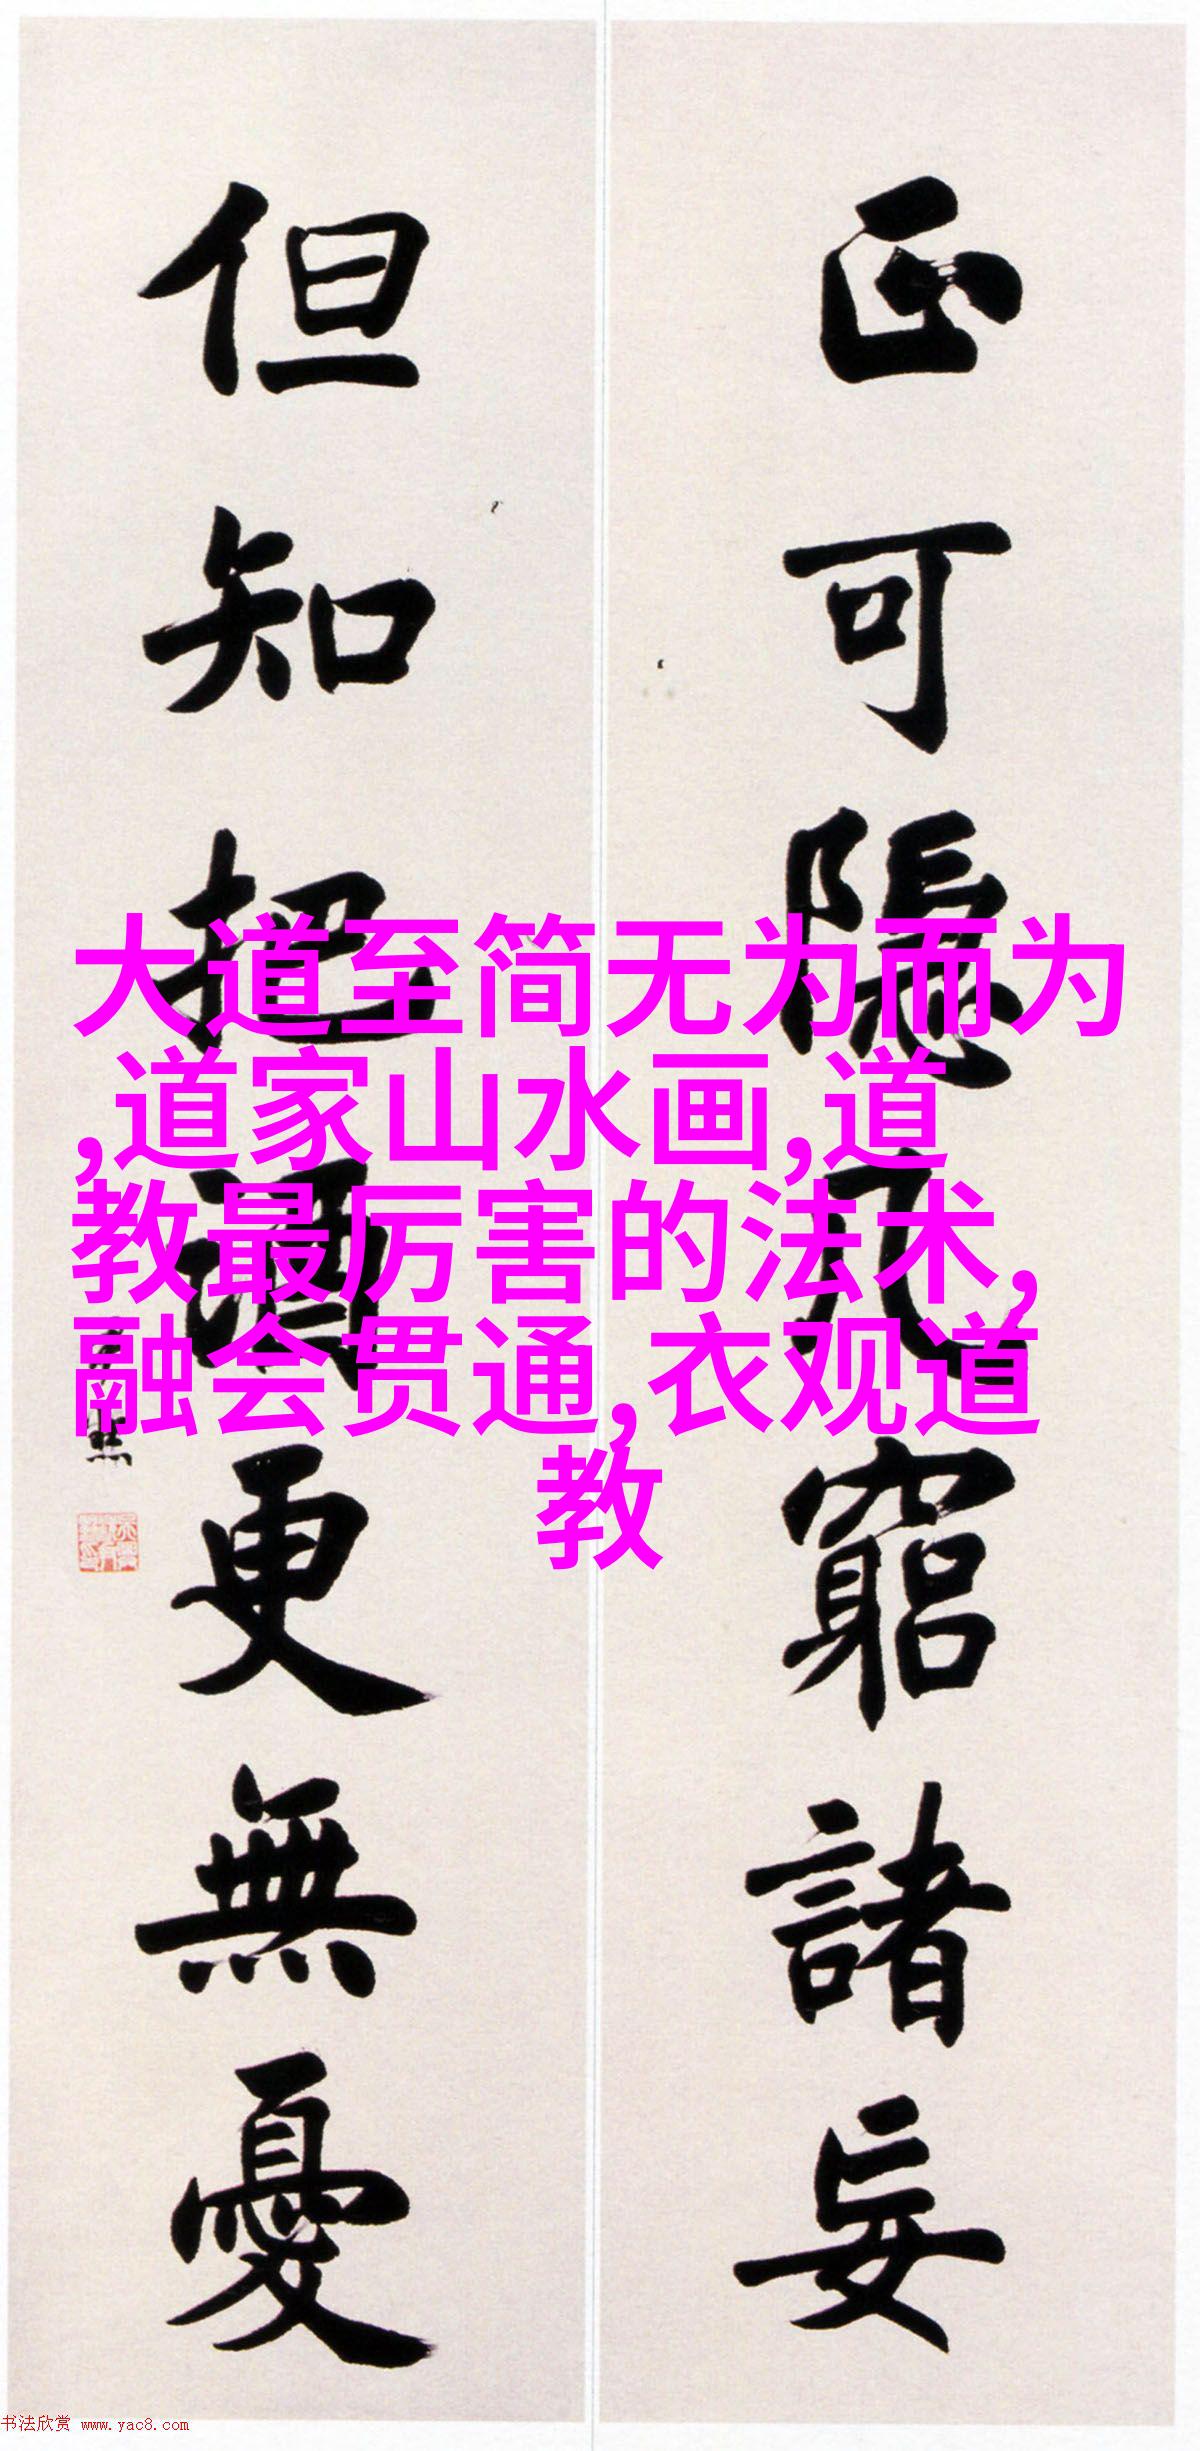 正可隱几窮諸妄
但知把酒更無憂
大道至简无为而为
,道家山水画,道
教最厉害的法术,
融会贯通,衣观道
教
书法欣赏 www.yac8.com